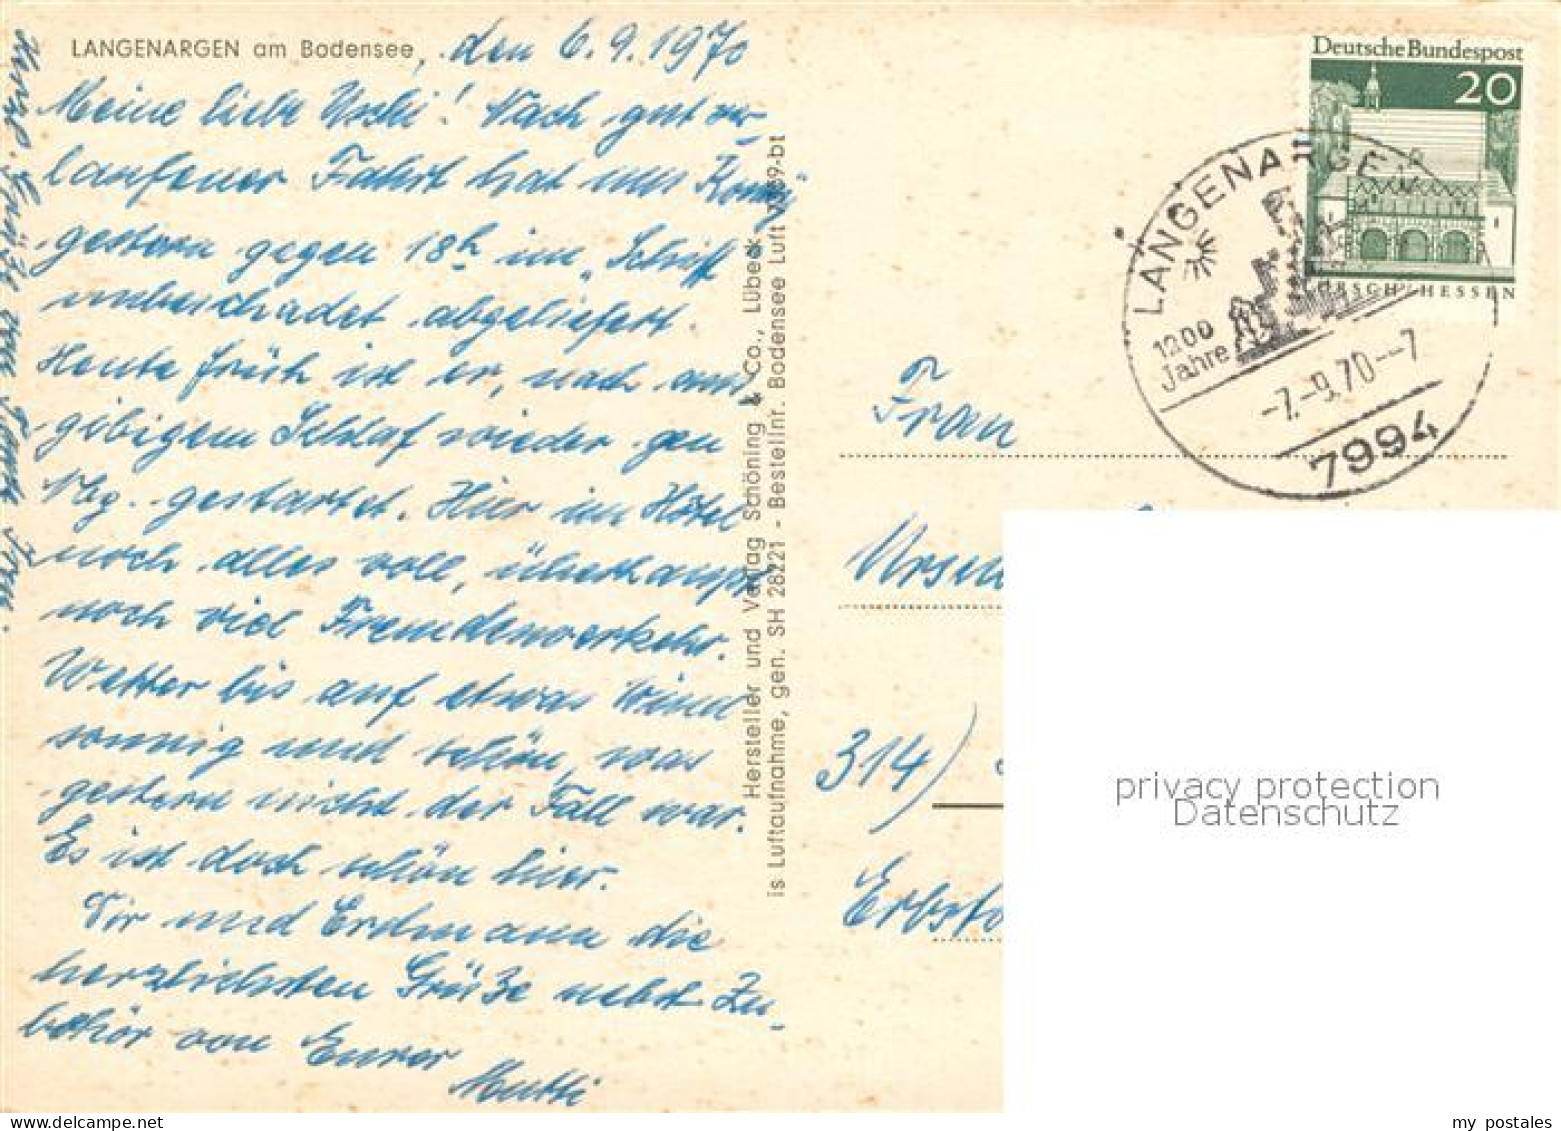 LANGENARGEN am Bodensee, den 6.9.1970
Meine liebe Uschi! Nach gut ver-
laufener Fahrt hat uns
gestern gegen 18h im "Schiff"
unbeschadet abgeliefert.
Heute früh ist er, nach aus-
gibigem Schlaf wieder gen
Nbg. gestartet. Hier im Hotel
noch alles voll, überhaupt
noch viel Fremdenverkehr.
Wetter bis auf etwas Wind
sonnig und schön, was
gestern nicht der Fall war.
Es ist doch schön hier.
Dir und Erdmann die
herzlichsten Grüße nebst Zu-
behör von Eurer
Mutti
Herzl. Grüße von
Hersteller und Verlag Schöning & Co., Lübeck
is Luftaufnahme, gen. SH 28221 - Bestellnr. Bodensee Luft
Deutsche Bundespost
20
LORSCH/HESSEN
LANGENARGEN
1200
Jahre
-7.-9.70--7
7994
Frau
314)
privacy protection
Datenschutz
my postales